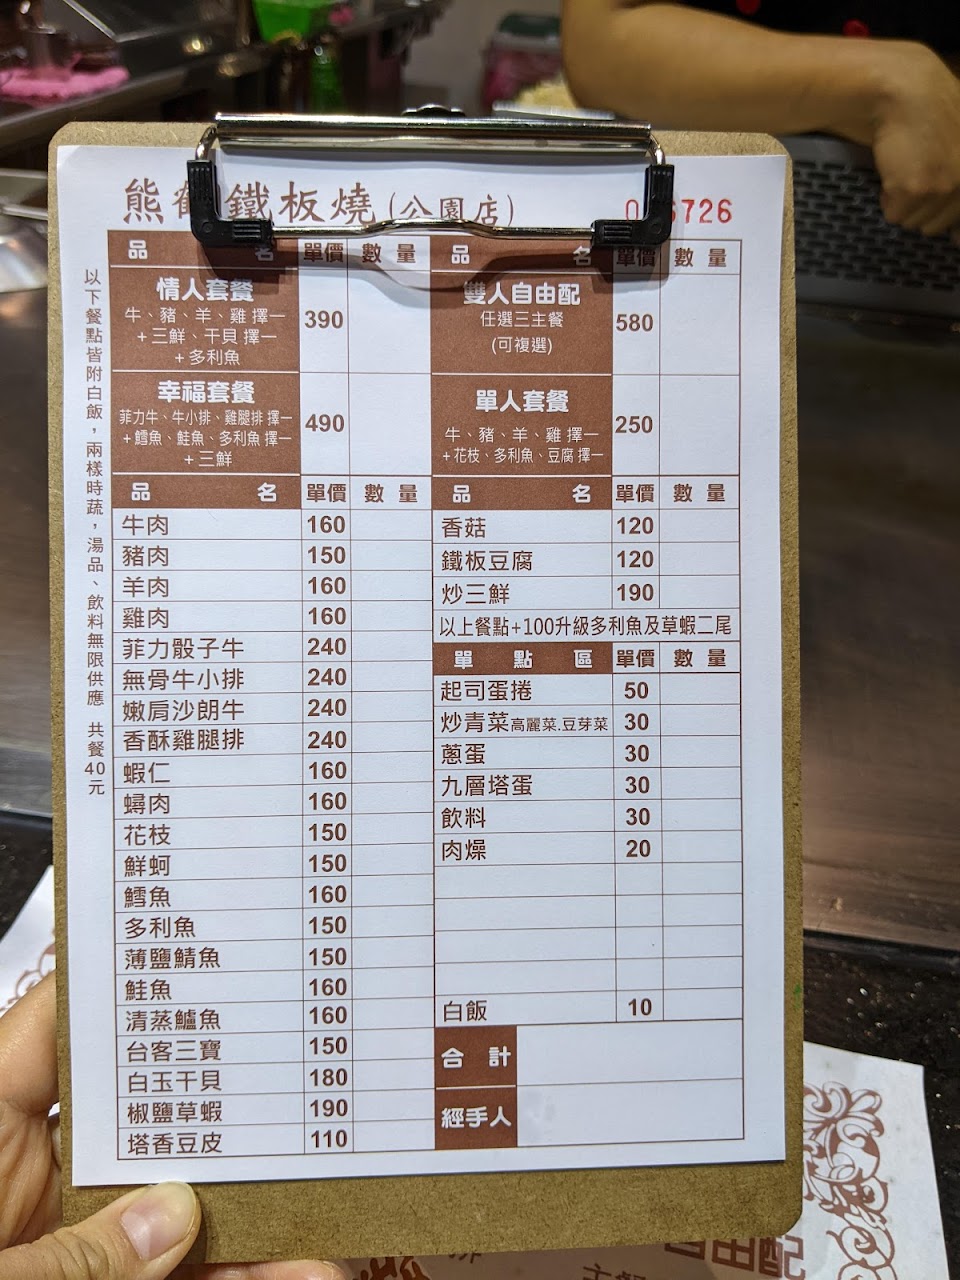 熊 鐵板燒(公園店)
6726
品 名 單價 數量
情人套餐
牛、豬、羊、雞 擇一
+三鮮、干貝 擇一
+多利魚
390
幸福套餐
菲力牛、牛小排、雞腿排 擇一
+鱈魚、鮭魚、多利魚 擇一
+三鮮
490
品 名 單價 數量
雙人自由配
任選三主餐
(可複選)
580
單人套餐
牛、豬、羊、雞 擇一
+花枝、多利魚、豆腐 擇一
250
以下餐點皆附白飯，兩樣時蔬，湯品、飲料無限供應 共餐40元
品 名 單價 數量
牛肉 160
豬肉 150
羊肉 160
雞肉 160
菲力骰子牛 240
無骨牛小排 240
嫩肩沙朗牛 240
香酥雞腿排 240
蝦仁 160
蟳肉 160
花枝 150
鮮蚵 150
鱈魚 160
多利魚 150
薄鹽鯖魚 150
鮭魚 160
清蒸鱸魚 160
台客三寶 150
白玉干貝 180
椒鹽草蝦 190
塔香豆皮 110
品 名 單價 數量
香菇 120
鐵板豆腐 120
炒三鮮 190
以上餐點+100升級多利魚及草蝦二尾
單點區 單價 數量
起司蛋捲 50
炒青菜高麗菜.豆芽菜 30
蔥蛋 30
九層塔蛋 30
飲料 30
肉燥 20
白飯 10
合計
經手人
自由配
主餐